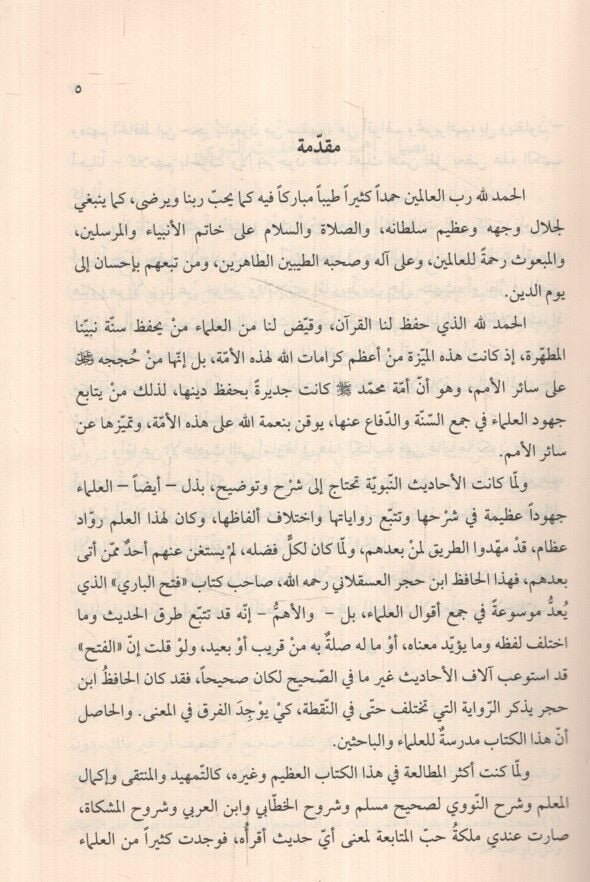 ٥
مقدّمة
الحمد لله رب العالمين حمداً كثيراً طيباً مباركاً فيه كما يحبّ ربنا ويرضى، كما ينبغي
لجلال وجهه وعظيم سلطانه، والصلاة والسلام على خاتم الأنبياء والمرسلين،
والمبعوث رحمةً للعالمين، وعلى آله وصحبه الطيبين الطاهرين، ومن تبعهم بإحسان إلى
يوم الدين.
الحمد لله الذي حفظ لنا القرآن، وقيّض لنا من العلماء منْ يحفظ سنّة نبيّنا
المطهّرة، إذ كانت هذه الميّزة منْ أعظم كرامات الله لهذه الأمّة، بل إنّها منْ حُججه ﷻ
على سائر الأمم، وهو أنّ أمّة محمّد ﷺ كانت جديرةً بحفظ دينها، لذلك منْ يتابع
جهود العلماء في جمع السّنّة والدّفاع عنها، يوقن بنعمة الله على هذه الأمّة، وتميّزها عن
سائر الأمم.
ولمّا كانت الأحاديث النّبويّة تحتاج إلى شرْح وتوضيح، بذل – أيضاً – العلماء
جهوداً عظيمة في شرْحها وتتبّع رواياتها واختلاف ألفاظها، وكان لهذا العلم روّاد
عظام، قدْ مهّدوا الطريق لمنْ بعدهم، ولمّا كان لكلٍّ فضله، لمْ يستغن عنهم أحدٌ ممّن أتى
بعدهم، فهذا الحافظ ابن حجر العسقلاني رحمه الله، صاحب كتاب «فتح الباري» الذي
يُعدُّ موسوعةً في جمع أقوال العلماء، بل – والأهمُّ – إنّه قد تتبّع طرق الحديث وما
اختلف لفظه وما يؤيّد معناه، أوْ ما له صلةٌ به منْ قريب أوْ بعيد، ولوْ قلت إنّ «الفتح»
قد استوعب آلاف الأحاديث غير ما في الصّحيح لكان صحيحاً، فقد كان الحافظُ ابن
حجر يذكر الرّواية التي تختلف حتّى في النّقطة، كيْ يوْجِدَ الفرق في المعنى. والحاصل
أنّ هذا الكتاب مدرسةٌ للعلماء والباحثين.
ولمّا كنت أكثر المطالعة في هذا الكتاب العظيم وغيره، كالتّمهيد والمنتقى وإكمال
المعلم وشرح النّووي لصحيح مسلم وشروح الخطّابي وابن العربي وشروح المشكاة،
صارت عندي ملكةُ حبّ المتابعة لمعنى أيّ حديث أقرأُه، فوجدت كثيراً من العلماء